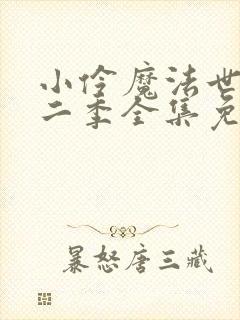 小伶魔法世
二季全集免
暴怒唐三藏